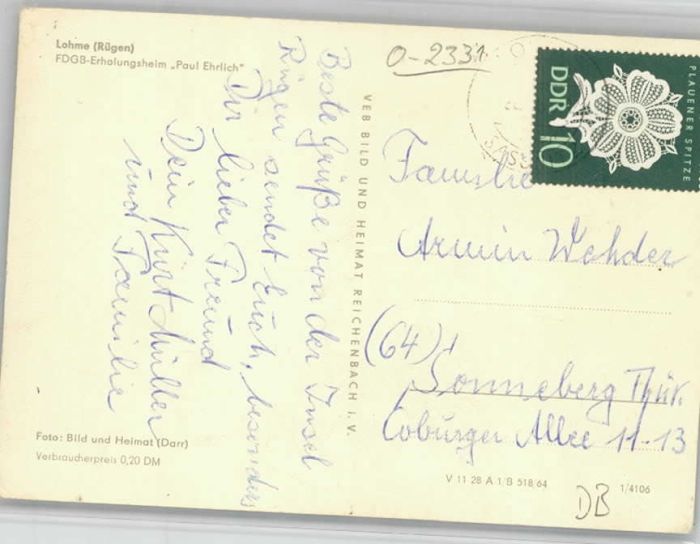 Lohme (Rügen)
FDGB-Erholungsheim „Paul Ehrlich"
Beste Grüße von der Insel
Rügen sendet Euch, besonders
Dir lieber Freund
Dein Kurt Müller
und Familie
Foto: Bild und Heimat (Darr)
Verbraucherpreis 0,20 DM
VEB BILD UND HEIMAT REICHENBACH I. V.
0-2331
DDR 10
PLAUENER SPITZE
Familie
Armin Wehder
(64)
Sonneberg Thür.
Coburger Allee 11-13
V 11 28 A 1 B 518 64
1/4106
DB